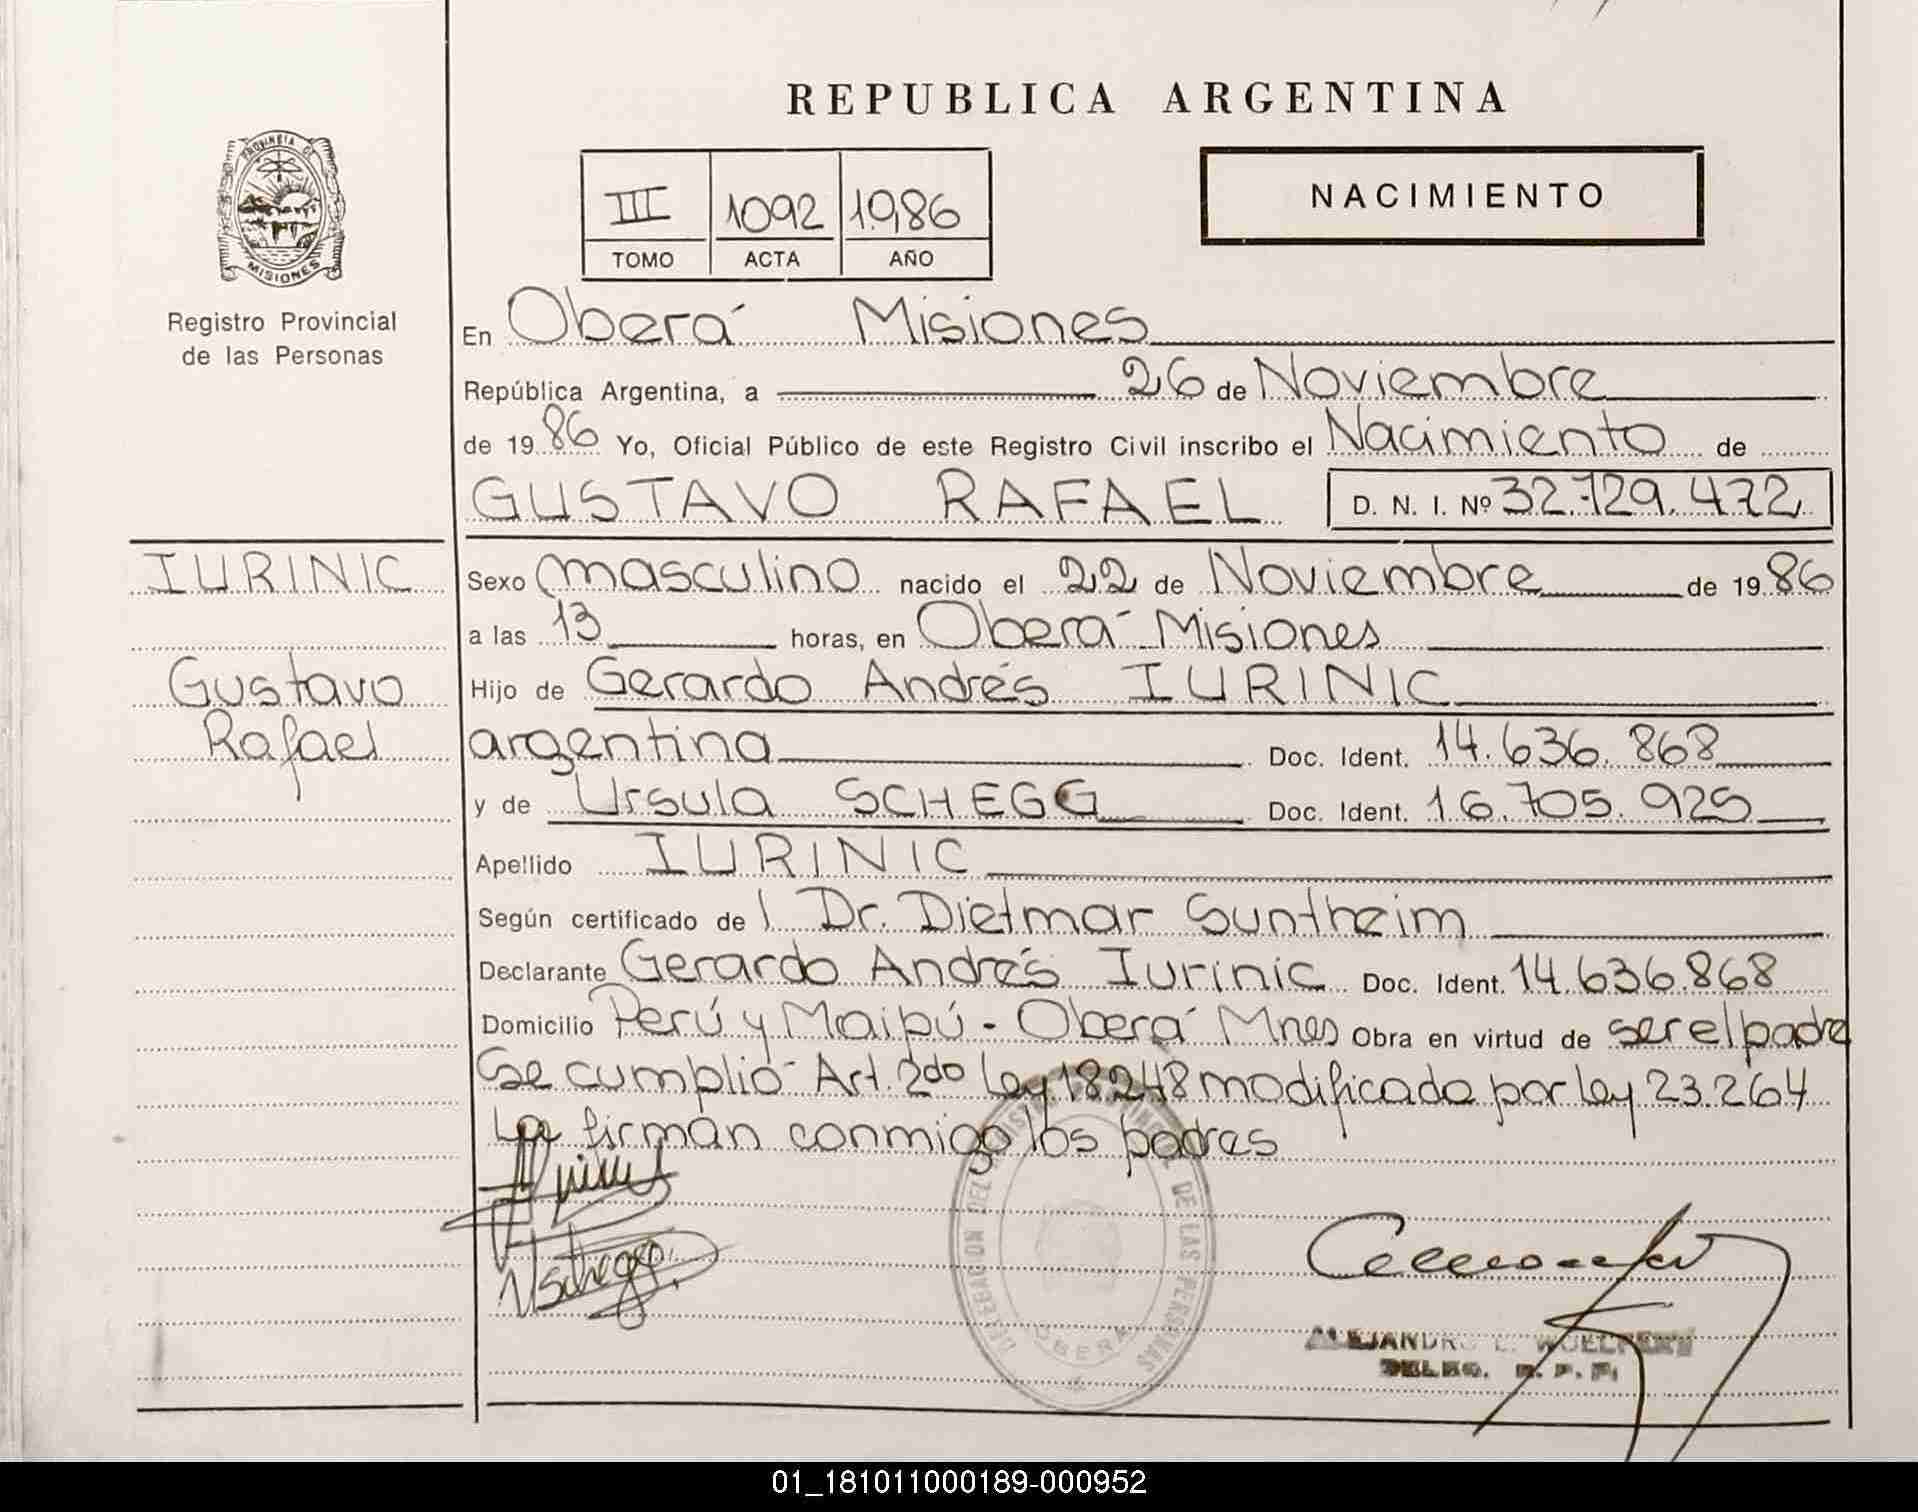 REPUBLICA ARGENTINA
PROVINCIA DE
MISIONES
III 1092 1986
TOMO ACTA AÑO
NACIMIENTO
Registro Provincial
de las Personas
En Oberá Misiones
República Argentina, a 26 de Noviembre
de 1986 Yo, Oficial Público de este Registro Civil inscribo el Nacimiento de
GUSTAVO RAFAEL D. N. I. Nº 32.729.472
IURINIC
Gustavo
Rafael
Sexo masculino nacido el 22 de Noviembre de 1986
a las 13 horas, en Oberá Misiones
Hijo de Gerardo Andrés IURINIC
argentina Doc. Ident. 14.636.868
y de Ursula SCHEGG Doc. Ident. 16.705.925
Apellido IURINIC
Según certificado de l Dr. Dietmar Suntheim
Declarante Gerardo Andrés Iurinic Doc. Ident. 14.636.868
Domicilio Perú y Maipú - Oberá Mnes Obra en virtud de ser el padre
Se cumplió Art. 2do Ley 18.248 modificado por ley 23.264
La firman conmigo los padres
DE LAS PERSONAS
OBERA
ALEJANDRO
DELEG. R. P. P.
01_181011000189-000952